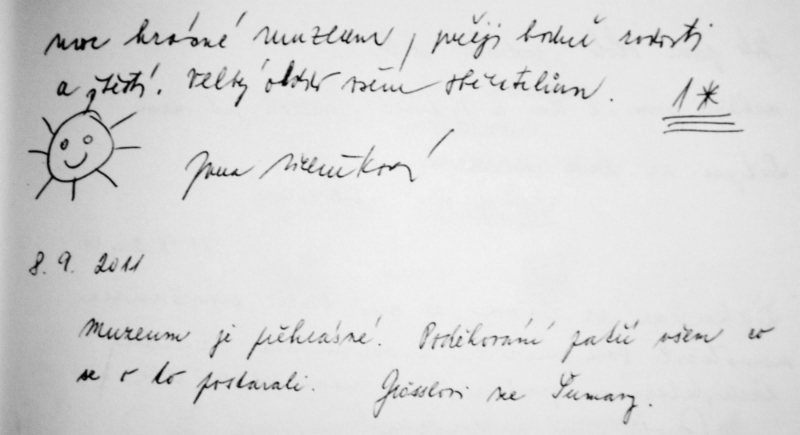 moc krásné muzeum, přeji hodně radosti
a štěstí. Velký obdiv všem sběratelům. 1*
Jana
8. 9. 2011
Muzeum je překrásné. Poděkování patří všem co
se o to postarali. Grösslovi ze Šumavy.